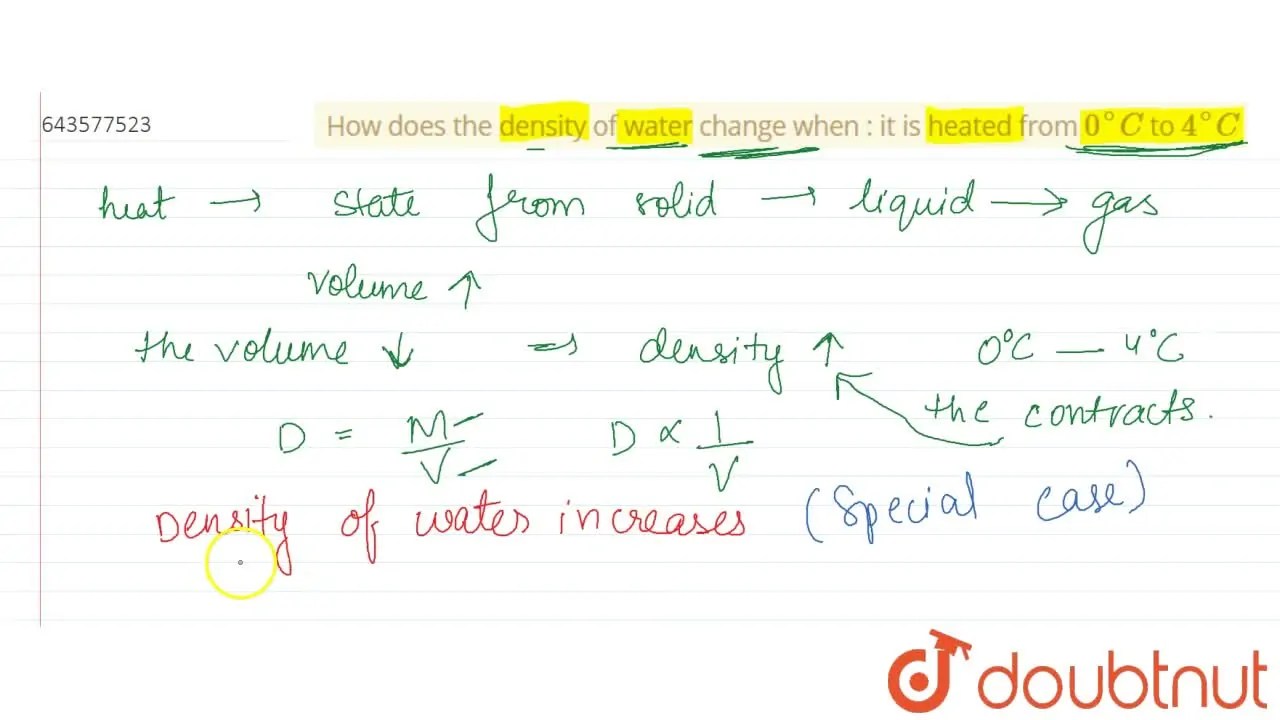 643577523
How does the density of water change when : it is heated from 0°C to 4°C
heat → state from solid → liquid → gas
volume ↑
the volume ↓ ⇒ density ↑ 0°C — 4°C
the contracts.
D = M/V D ∝ 1/V
Density of water increases (Special case)
doubtnut